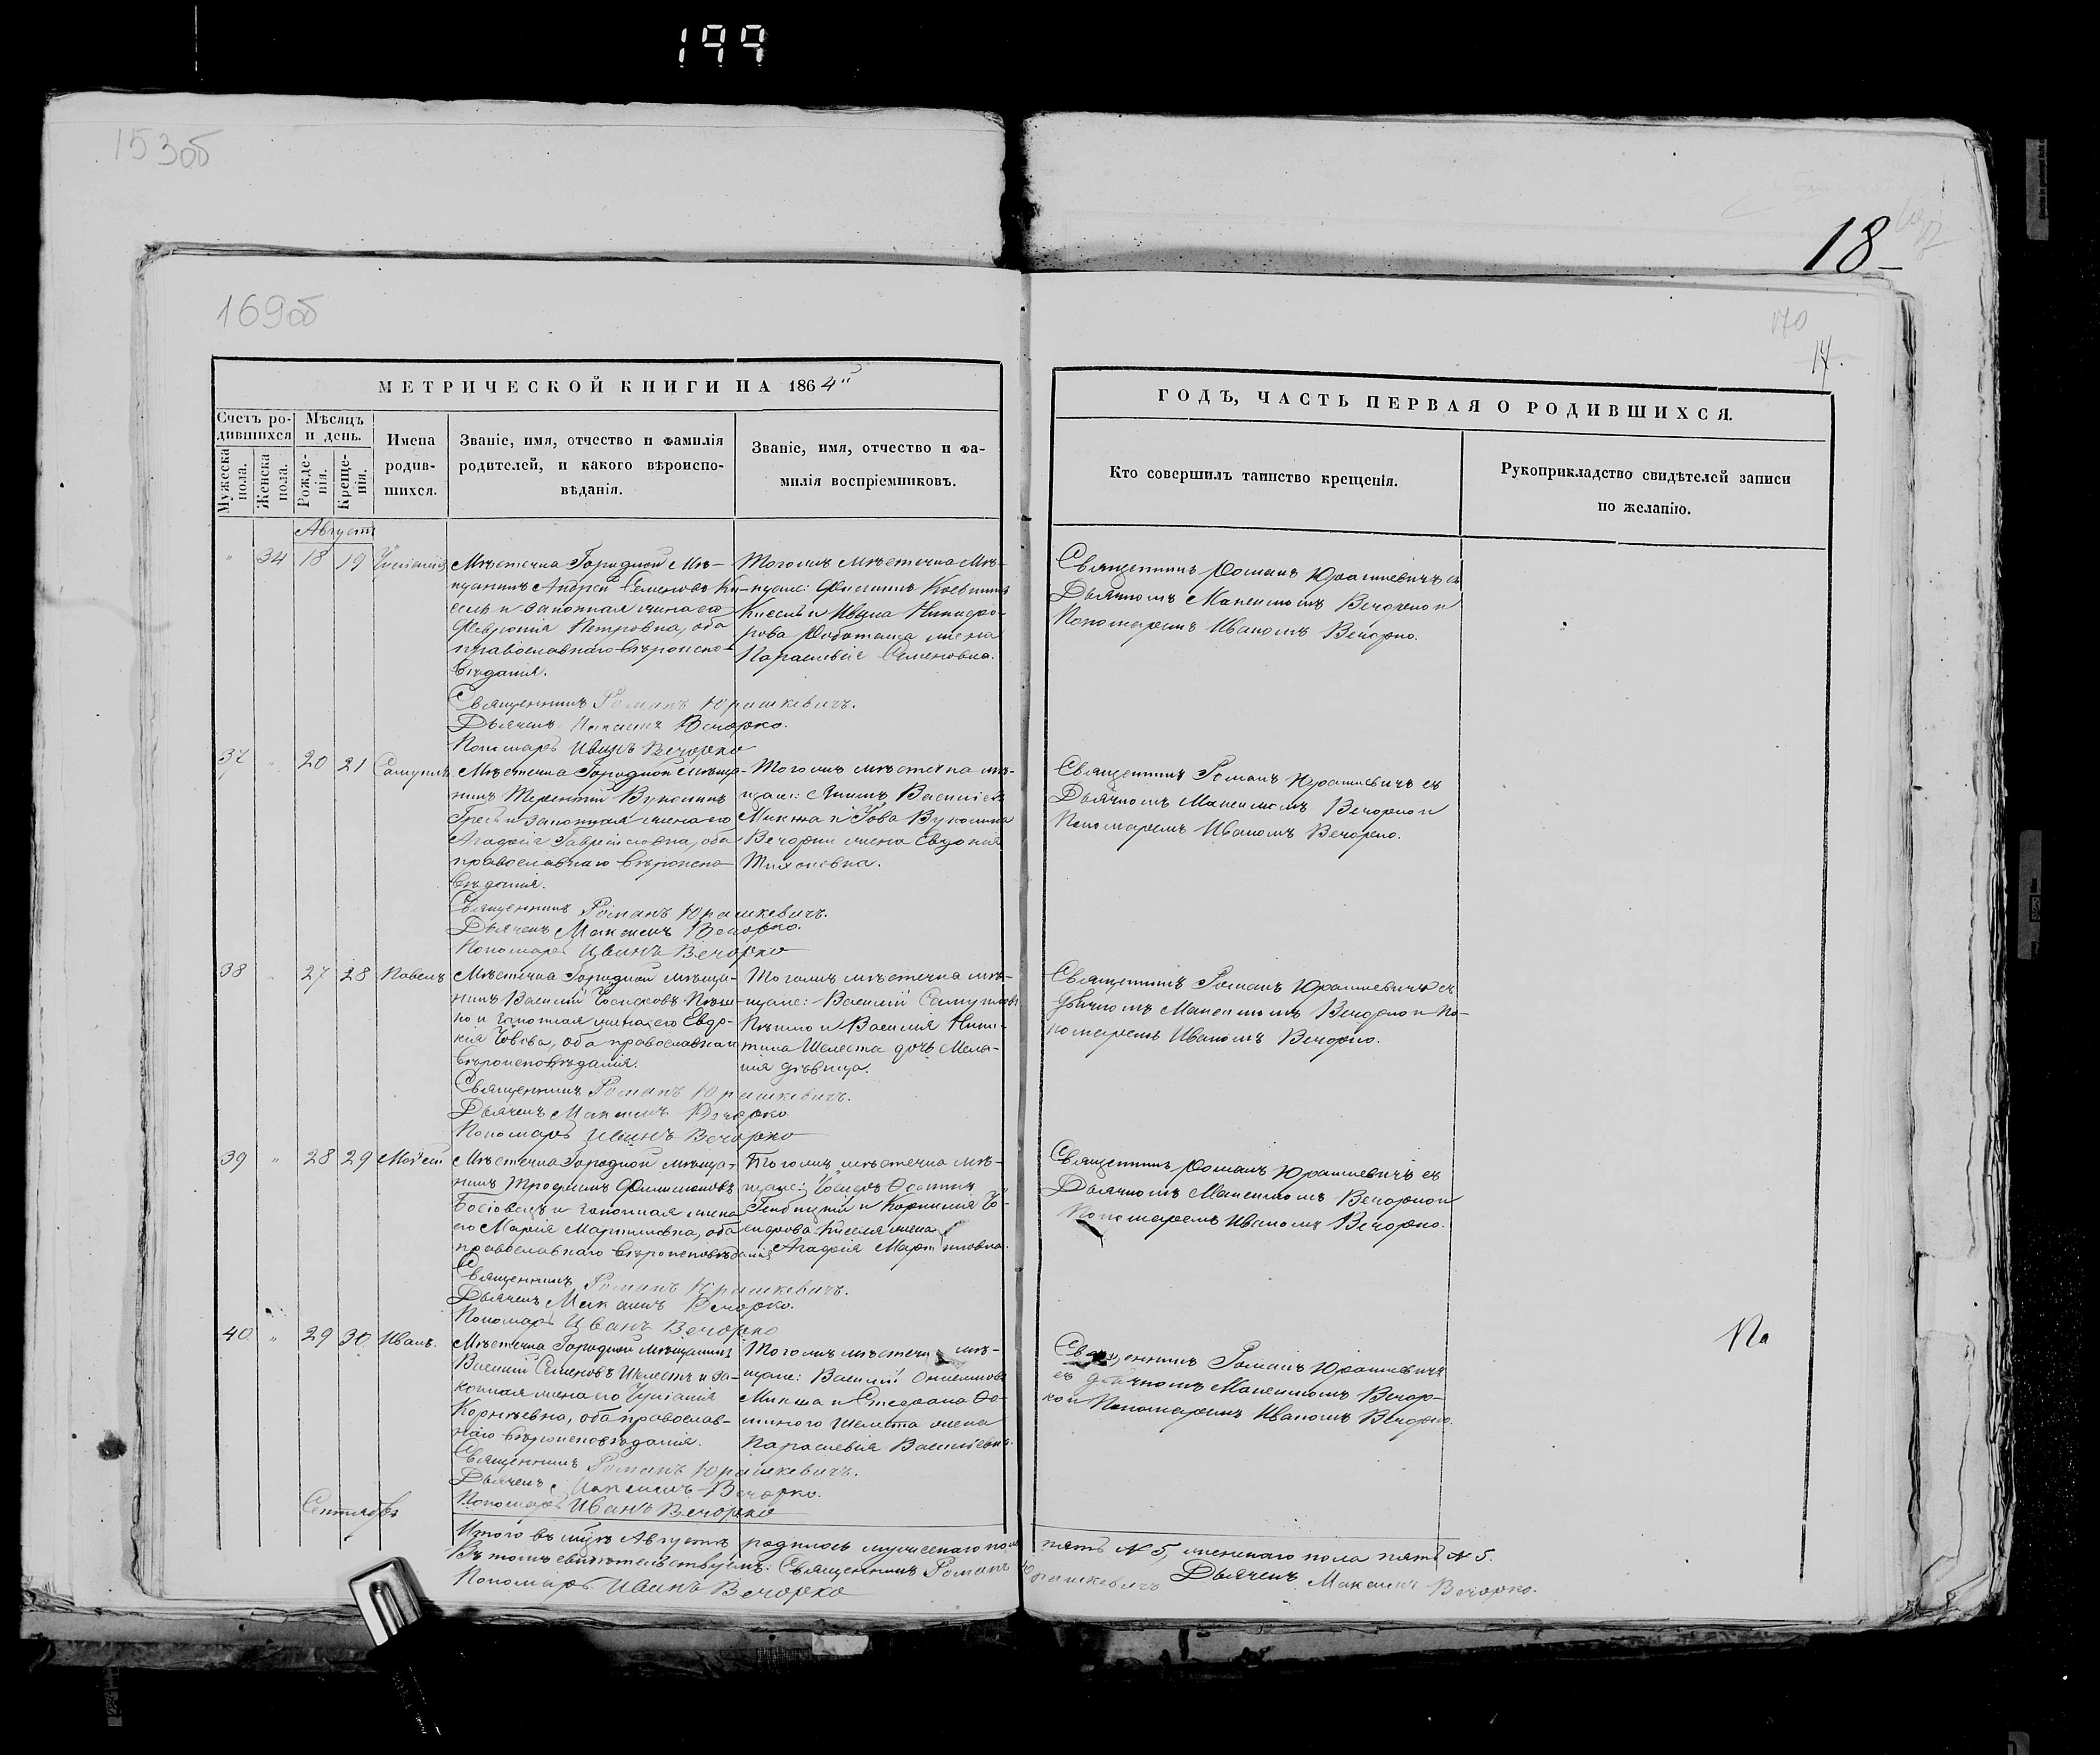 199
153об
18
169об
170
17.
МЕТРИЧЕСКОЙ КНИГИ НА 1864й
Счетъ родившихся
Мѣсяцъ и день.
Имена родившихся.
Званіе, имя, отчество и фамилія родителей, и какого вѣроисповѣданія.
Званіе, имя, отчество и фамилія воспріемниковъ.
Мужеска пола.
Женска пола.
Рожденія.
Крещенія.
ГОДЪ, ЧАСТЬ ПЕРВАЯ О РОДИВШИХСЯ.
Кто совершилъ таинство крещенія.
Рукоприкладство свидѣтелей записи по желанію.
Августъ
" 34 18 19
Мѣстечка Городной Мѣ-
щанинъ Андрей Семеновъ Ки-
сель и законная жена его
Феvронія Петровна, оба
православнаго вѣроиспо-
вѣданія.
Тогожъ мѣстечка Мѣ-
щане:
Кисель и
жена
Параскевія Семеновна.
Священникъ Романъ Юрашкевичъ съ
Дьячкомъ Максимомъ Вечорко и
Пономаремъ Иваномъ Вечорко.
Священникъ Романъ Юрашкевичъ.
Дьячекъ Максимъ Вечорко.
Пономарь Иванъ Вечорко
37 " 20 21 Самуилъ
Мѣстечка Городной мѣща-
нинъ Терентій
и законная жена его
Агафія Гавриловна, оба
православнаго вѣроиспо-
вѣданія.
Тогожъ мѣстечка мѣ-
щане: Василіевъ
Микша и
Вечорки жена Евдокія
Тихоновна.
Священникъ Романъ Юрашкевичъ съ
Дьячкомъ Максимомъ Вечорко и
Пономаремъ Иваномъ Вечорко.
Священникъ Романъ Юрашкевичъ.
Дьячекъ Максимъ Вечорко.
Пономарь Иванъ Вечорко
38 " 27 28 Павелъ
Мѣстечка Городной мѣща-
нинъ Василій Іосифовъ
и законная жена его Евдо-
кія оба православнаго
вѣроисповѣданія.
Тогожъ мѣстечка мѣ-
щане: Василій Самуиловъ
и Василія Ники-
тина Шелеста дочь Мела-
нія дѣвица.
Священникъ Романъ Юрашкевичъ съ
Дьячкомъ Максимомъ Вечорко и По-
номаремъ Иваномъ Вечорко.
Священникъ Романъ Юрашкевичъ.
Дьячекъ Максимъ Вечорко
Пономарь Иванъ Вечорко
39 " 28 29 Моѵсей
Мѣстечка Городной мѣща-
нинъ Трофимъ Филимоновъ
и законная жена
его Марія Мартиновна, оба
православнаго вѣроисповѣданія
Тогожъ мѣстечка мѣ-
щане: Іосифъ
и Корнилія Іо-
сифова Киселя жена
Агафія Мартиновна.
Священникъ Романъ Юрашкевичъ съ
Дьячкомъ Максимомъ Вечорко и
Пономаремъ Иваномъ Вечорко.
Священникъ Романъ Юрашкевичъ.
Дьячекъ Максимъ Вечорко.
Пономарь Иванъ Вечорко
40 " 29 30 Иванъ.
Мѣстечка Городной Мѣщанинъ
Василій Семеновъ Шелестъ и за-
конная жена его Іуліанія
Корнѣевна, оба православ-
наго вѣроисповѣданія.
Тогожъ мѣстечка мѣ-
щане: Василій
Микша и Стефана Ѳо-
мина Шелеста жена
Параскевія Василіевна.
Священникъ Романъ Юрашкевичъ
съ дьячкомъ Максимомъ Вечор-
ко и Пономаремъ Иваномъ Вечорко.
Священникъ Романъ Юрашкевичъ.
Дьячекъ Максимъ Вечорко.
Пономарь Иванъ Вечорко
Сентябрь
Итого въ м-цѣ Августѣ родилось мужескаго пола пять № 5, женскаго пола пять № 5.
Въ томъ свидѣтельствуемъ: Священникъ Романъ Юрашкевичъ Дьячекъ Максимъ Вечорко.
Пономарь Иванъ Вечорко